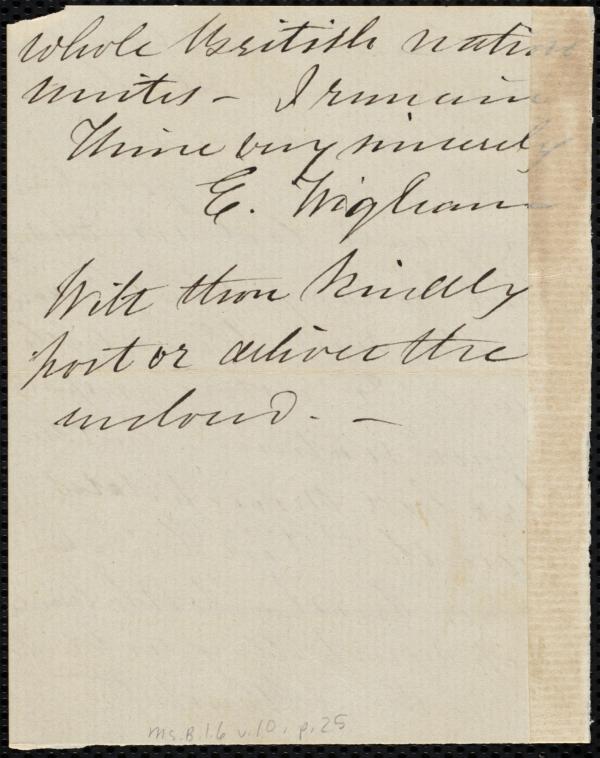 whole British nation
unites – I remain
Thine very sincerely
E. Wigham
Wilt thou kindly
post or deliver the
enclosed. –
Ms. B. 1.6 v. 10, p. 25